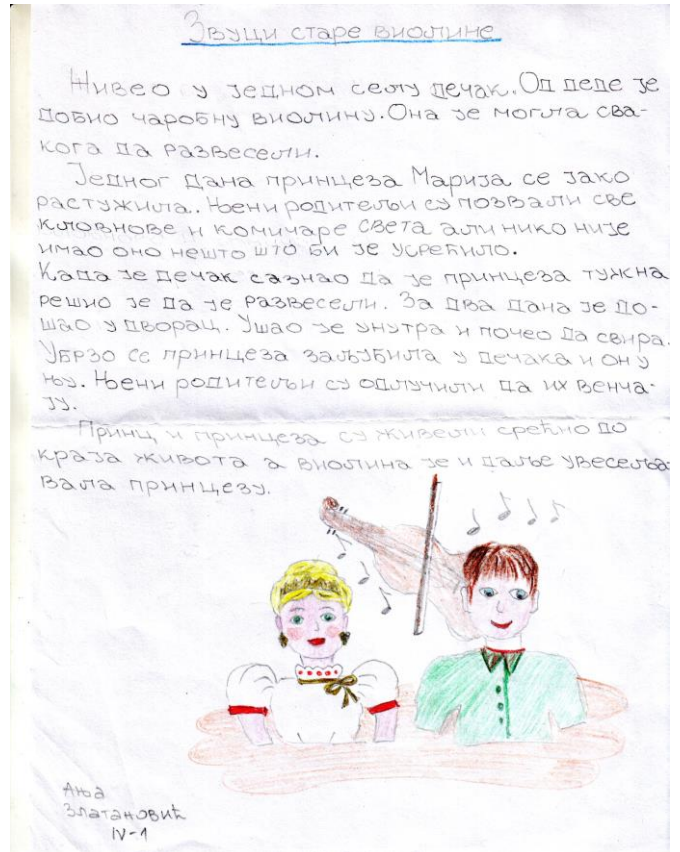 Звуци старе виолине
Живео у једном селу дечак. Од деде је
добио чаробну виолину. Она је могла сва-
кога да развесели.
Једног дана принцеза Марија се јако
растужила. Њени родитељи су позвали све
кловнове и комичаре света али нико није
имао оно нешто што би је усрећило.
Када је дечак сазнао да је принцеза тужна
решио је да је развесели. За два дана је до-
шао у дворац. Ушао је унутра и почео да свира.
Убрзо се принцеза заљубила у дечака и он у
њу. Њени родитељи су одлучили да их венча-
ју.
Принц и принцеза су живели срећно до
краја живота а виолина је и даље увесеља-
вала принцезу.
Ања
Златановић
IV-1